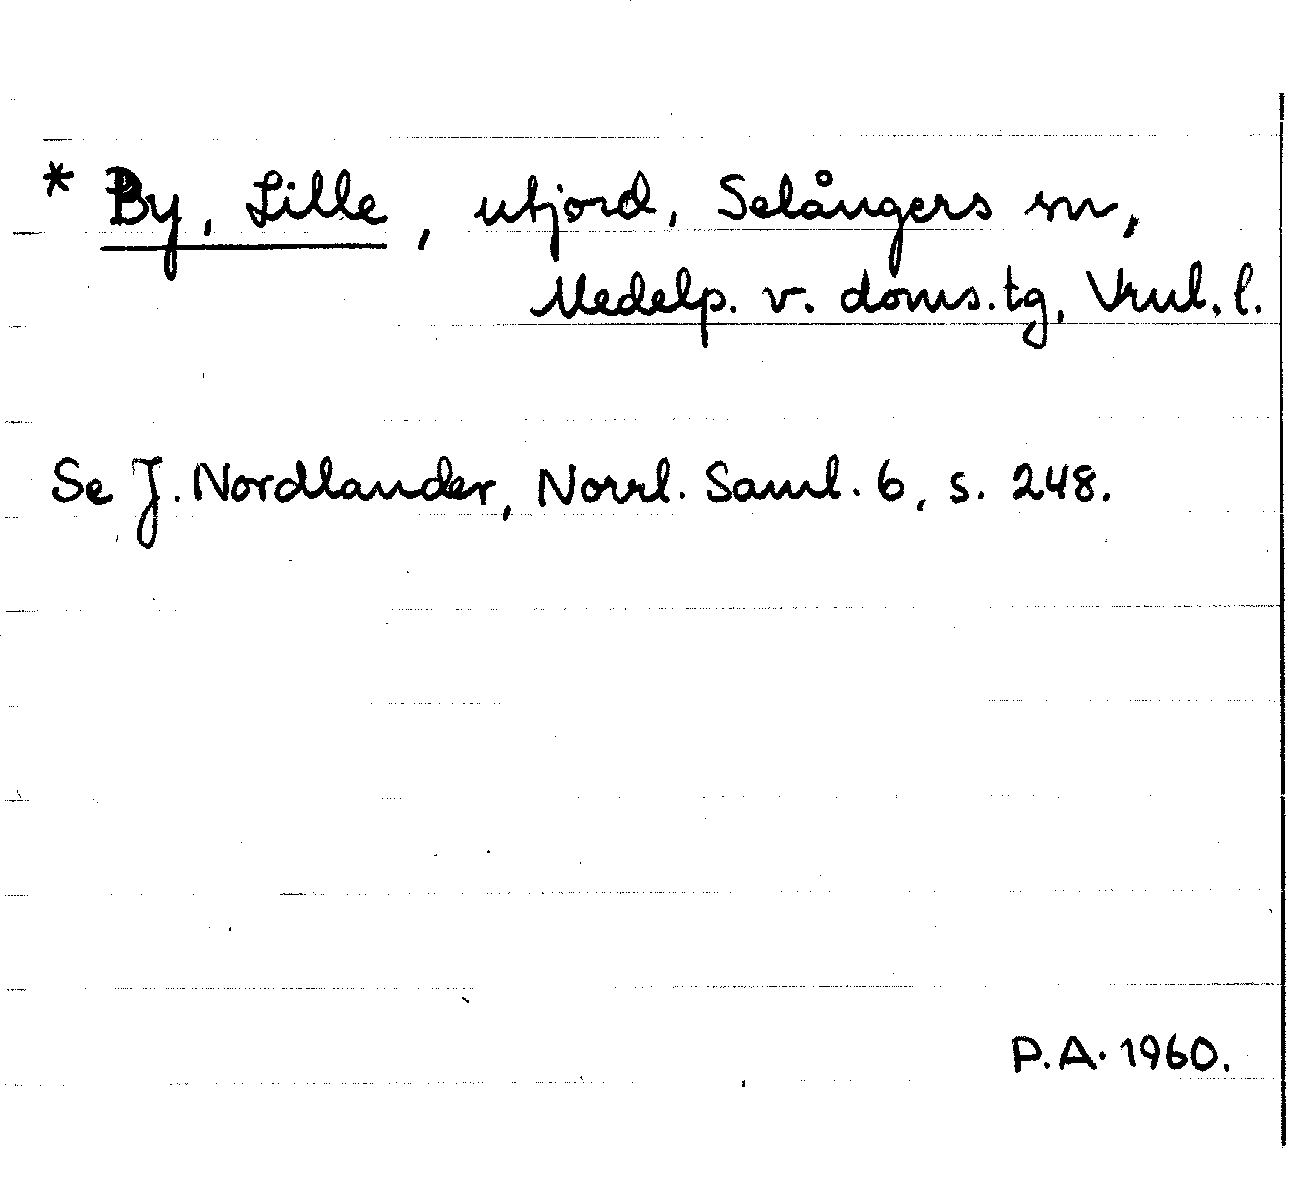 * By, Lille, utjord, Selångers sn,
Medelp. v. doms. tg, Vnul. l.
Se J. Nordlander, Norrl. Saml. 6, s. 248.
P.A. 1960.